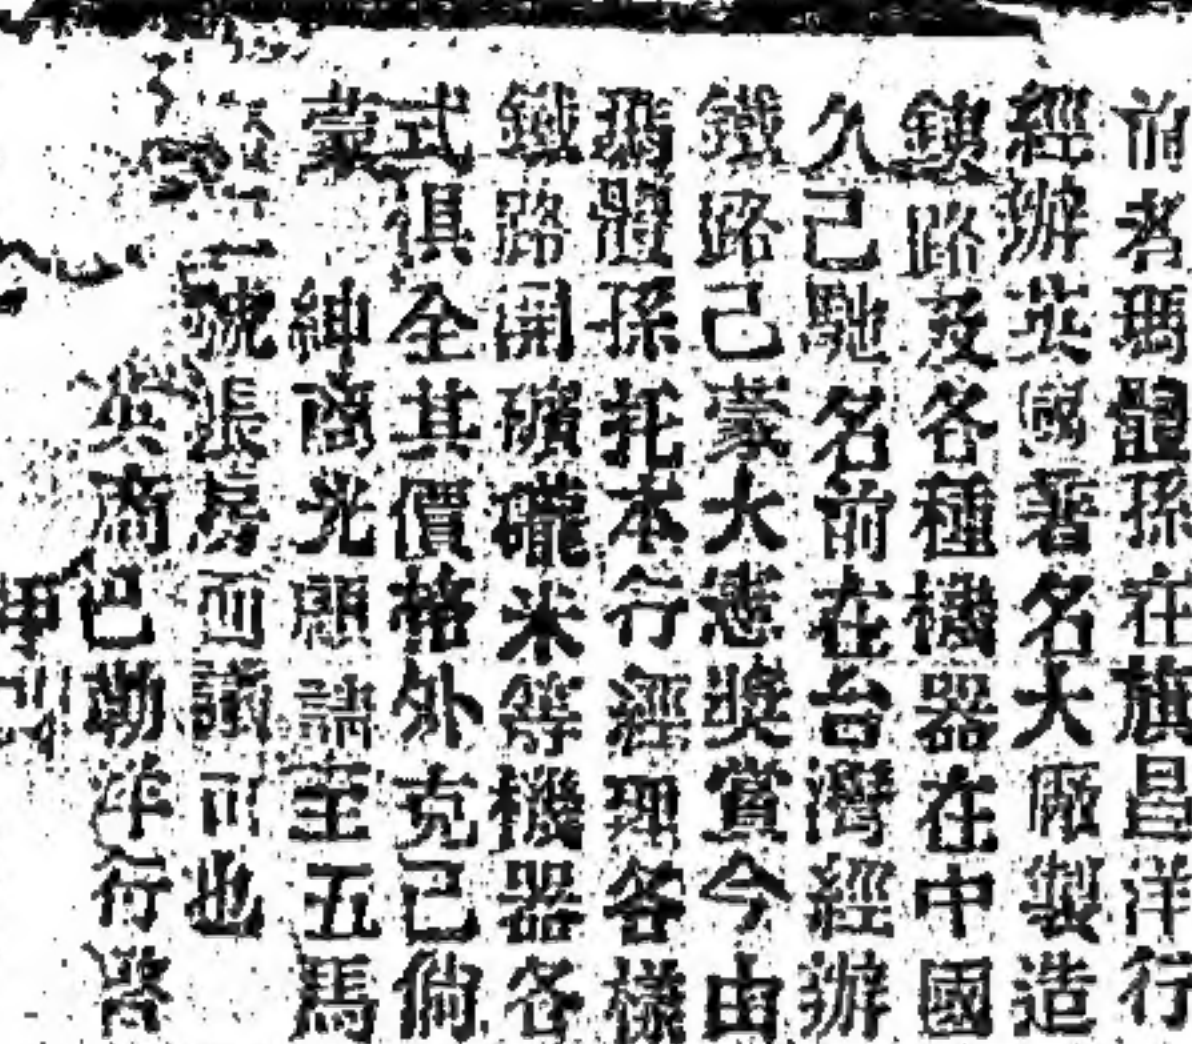 前者瑪體孫在旗昌洋行
經辦英國著名大廠製造
鐵路及各種機器在中國
久已馳名前在台灣經辦
鐵路已蒙大憲獎賞今由
瑪體孫托本行經理各樣
鐵路開礦礲米等機器各
式俱全其價格外克己倘
蒙
紳商光顧請至五馬
號張房面議可也
英商巴勒牟行啓